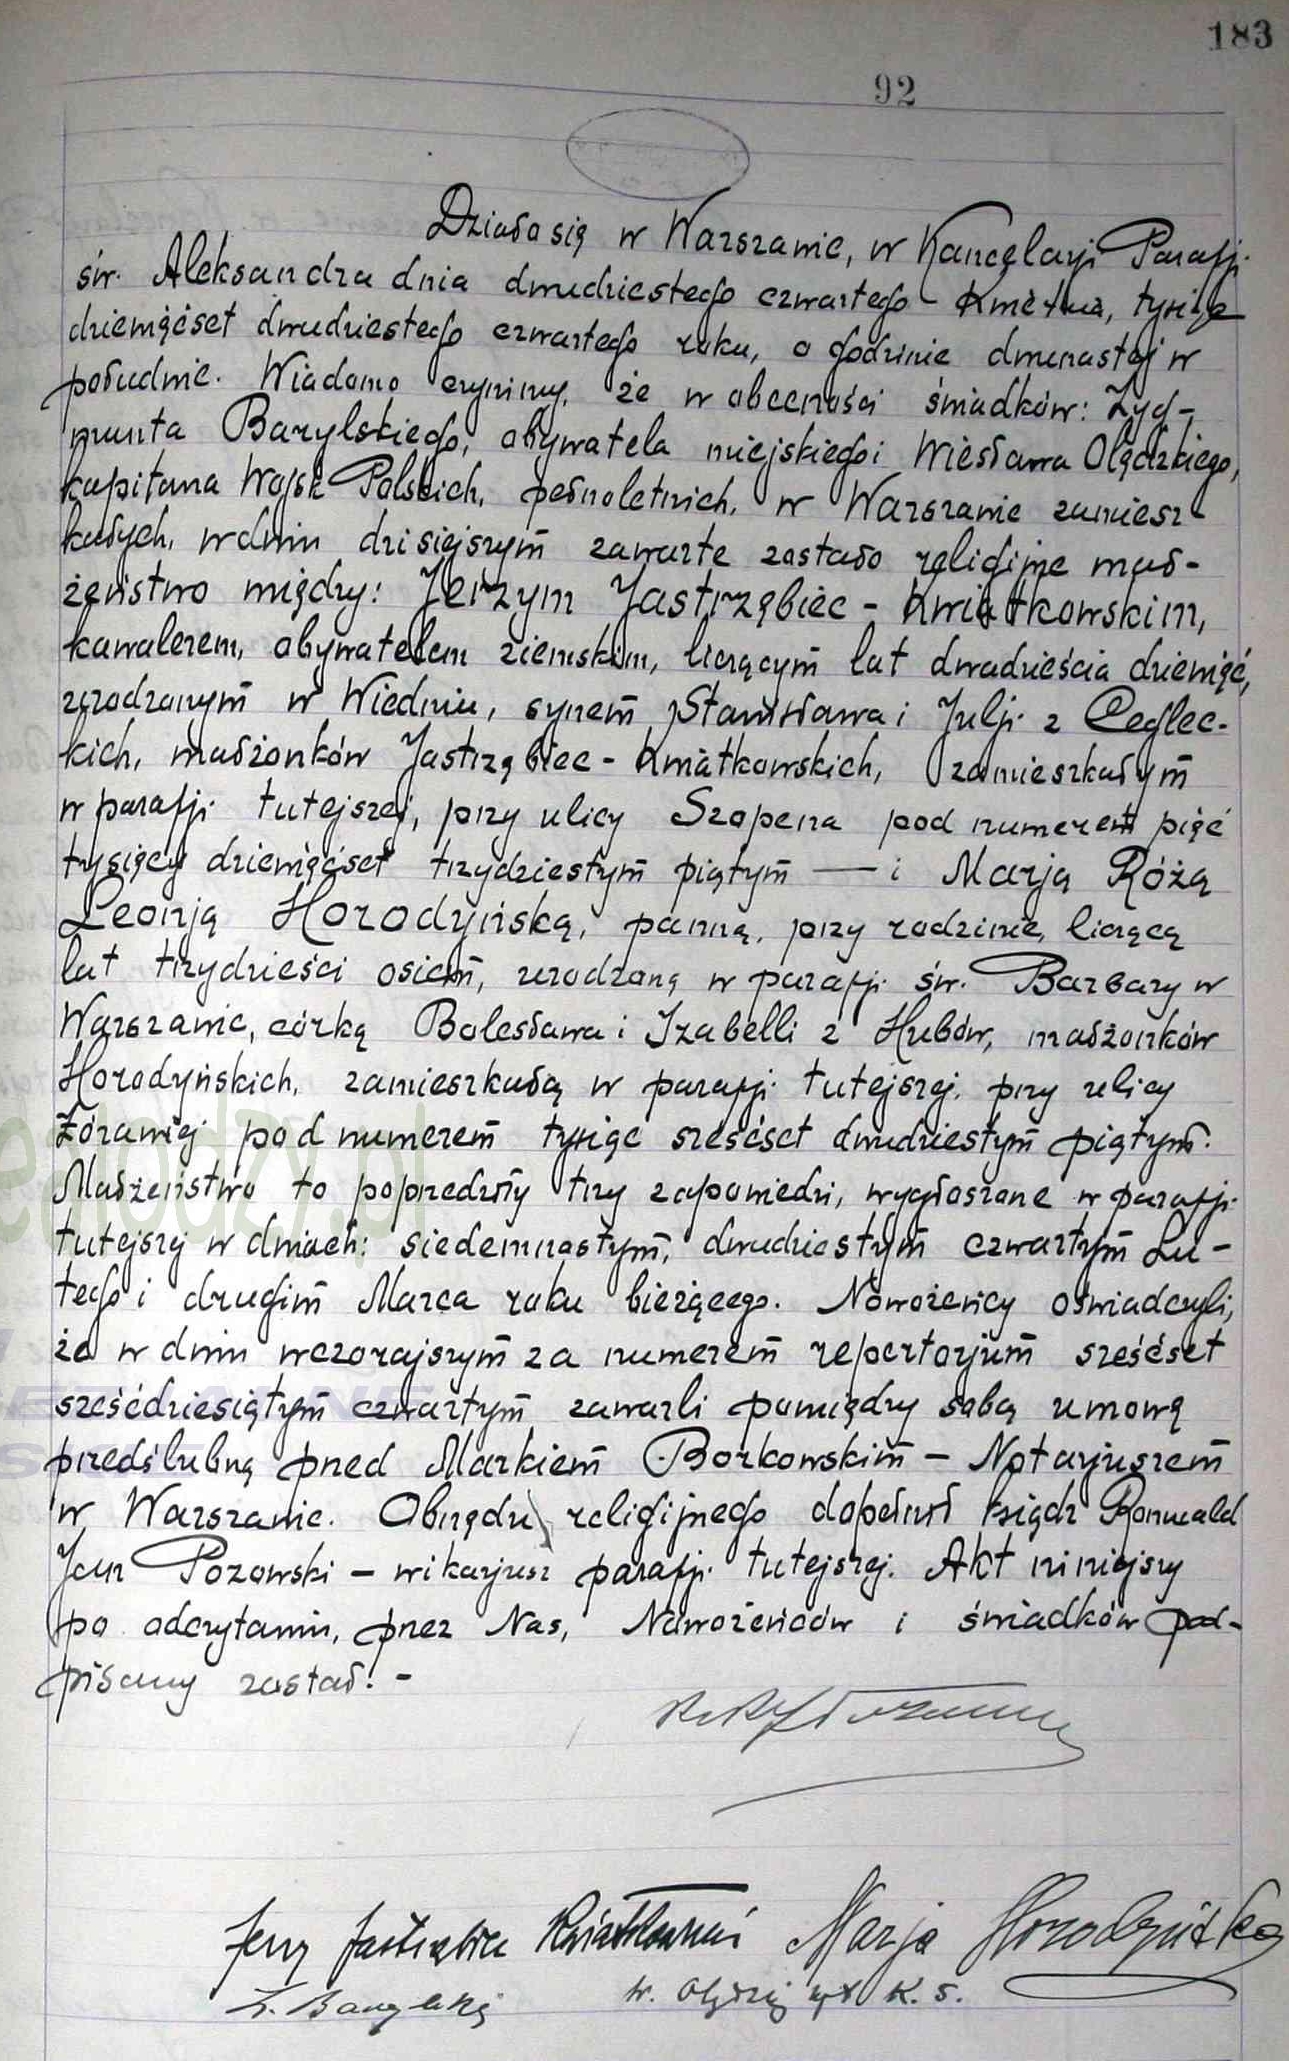 183
92
Działo się w Warszawie, w Kancelarji Parafji
św. Aleksandra dnia dwudziestego czwartego Kwietnia, tysiąc
dziewięćset dwudziestego czwartego roku, o godzinie dwunastej w
południe. Wiadomo czynimy, że w obecności świadków: Zyg-
munta Barylskiego, obywatela miejskiego i Wiesława Olędzkiego,
kapitana Wojsk Polskich, pełnoletnich, w Warszawie zamiesz
kałych, w dniu dzisiejszym zawarte zostało religijne mał-
żeństwo między: Jerzym Jastrzębiec - Kwiatkowskim,
kawalerem, obywatelem ziemskim, liczącym lat dwadzieścia dziewięć,
urodzonym w Wiedniu, synem Stanisława i Julji z Ceglec-
kich, małżonków Jastrzębiec - Kwiatkowskich, zamieszkałym
w parafji tutejszej, przy ulicy Szopena pod numerem pięć
tysięcy dziewięćset trzydziestym piątym — i Marją Różą
Leonją Horodyńską, panną, przy rodzinie, liczącą
lat trzydzieści osiem, urodzoną w parafji św. Barbary w
Warszawie, córką Bolesława i Izabelli z Hubów, małżonków
Horodyńskich, zamieszkałą w parafji tutejszej, przy ulicy
Żórawiej pod numerem tysiąc sześćset dwudziestym piątym.
Małżeństwo to poprzedziły trzy zapowiedzi, wygłoszone w parafji
tutejszej w dniach: siedemnastym, dwudziestym czwartym Lu-
tego i drugim Marca roku bieżącego. Nowożeńcy oświadczyli,
że w dniu wczorajszym za numerem repertorjum sześćset
sześćdziesiątym czwartym zawarli pomiędzy sobą umowę
przedślubną przed Markiem Borkowskim — Notarjuszem
w Warszawie. Obrzędu religijnego dopełnił ksiądz Romuald
Jan Pozowski — wikarjusz parafji tutejszej. Akt niniejszy
po odczytaniu, przez Nas, Nowożeńców i świadków pod-
pisany został. -
Jerzy Jastrzębiec Kwiatkowski Marja Horodyńska
Z. Barylski W. Olędzki kpt K. S.